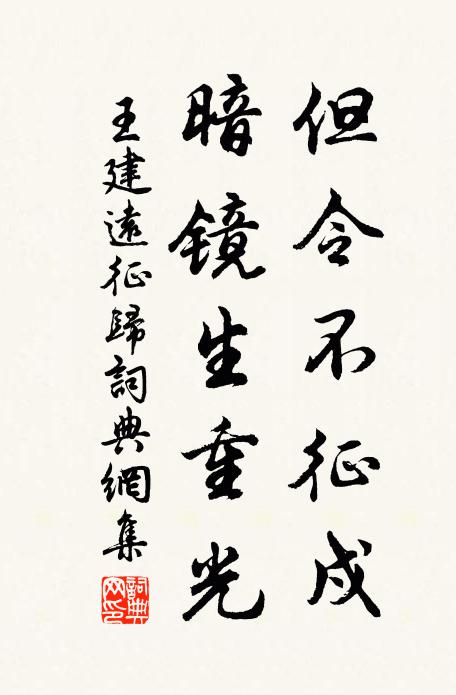 但令不征戍
暗镜生重光
王建遠征歸詞典網集
詞典網印